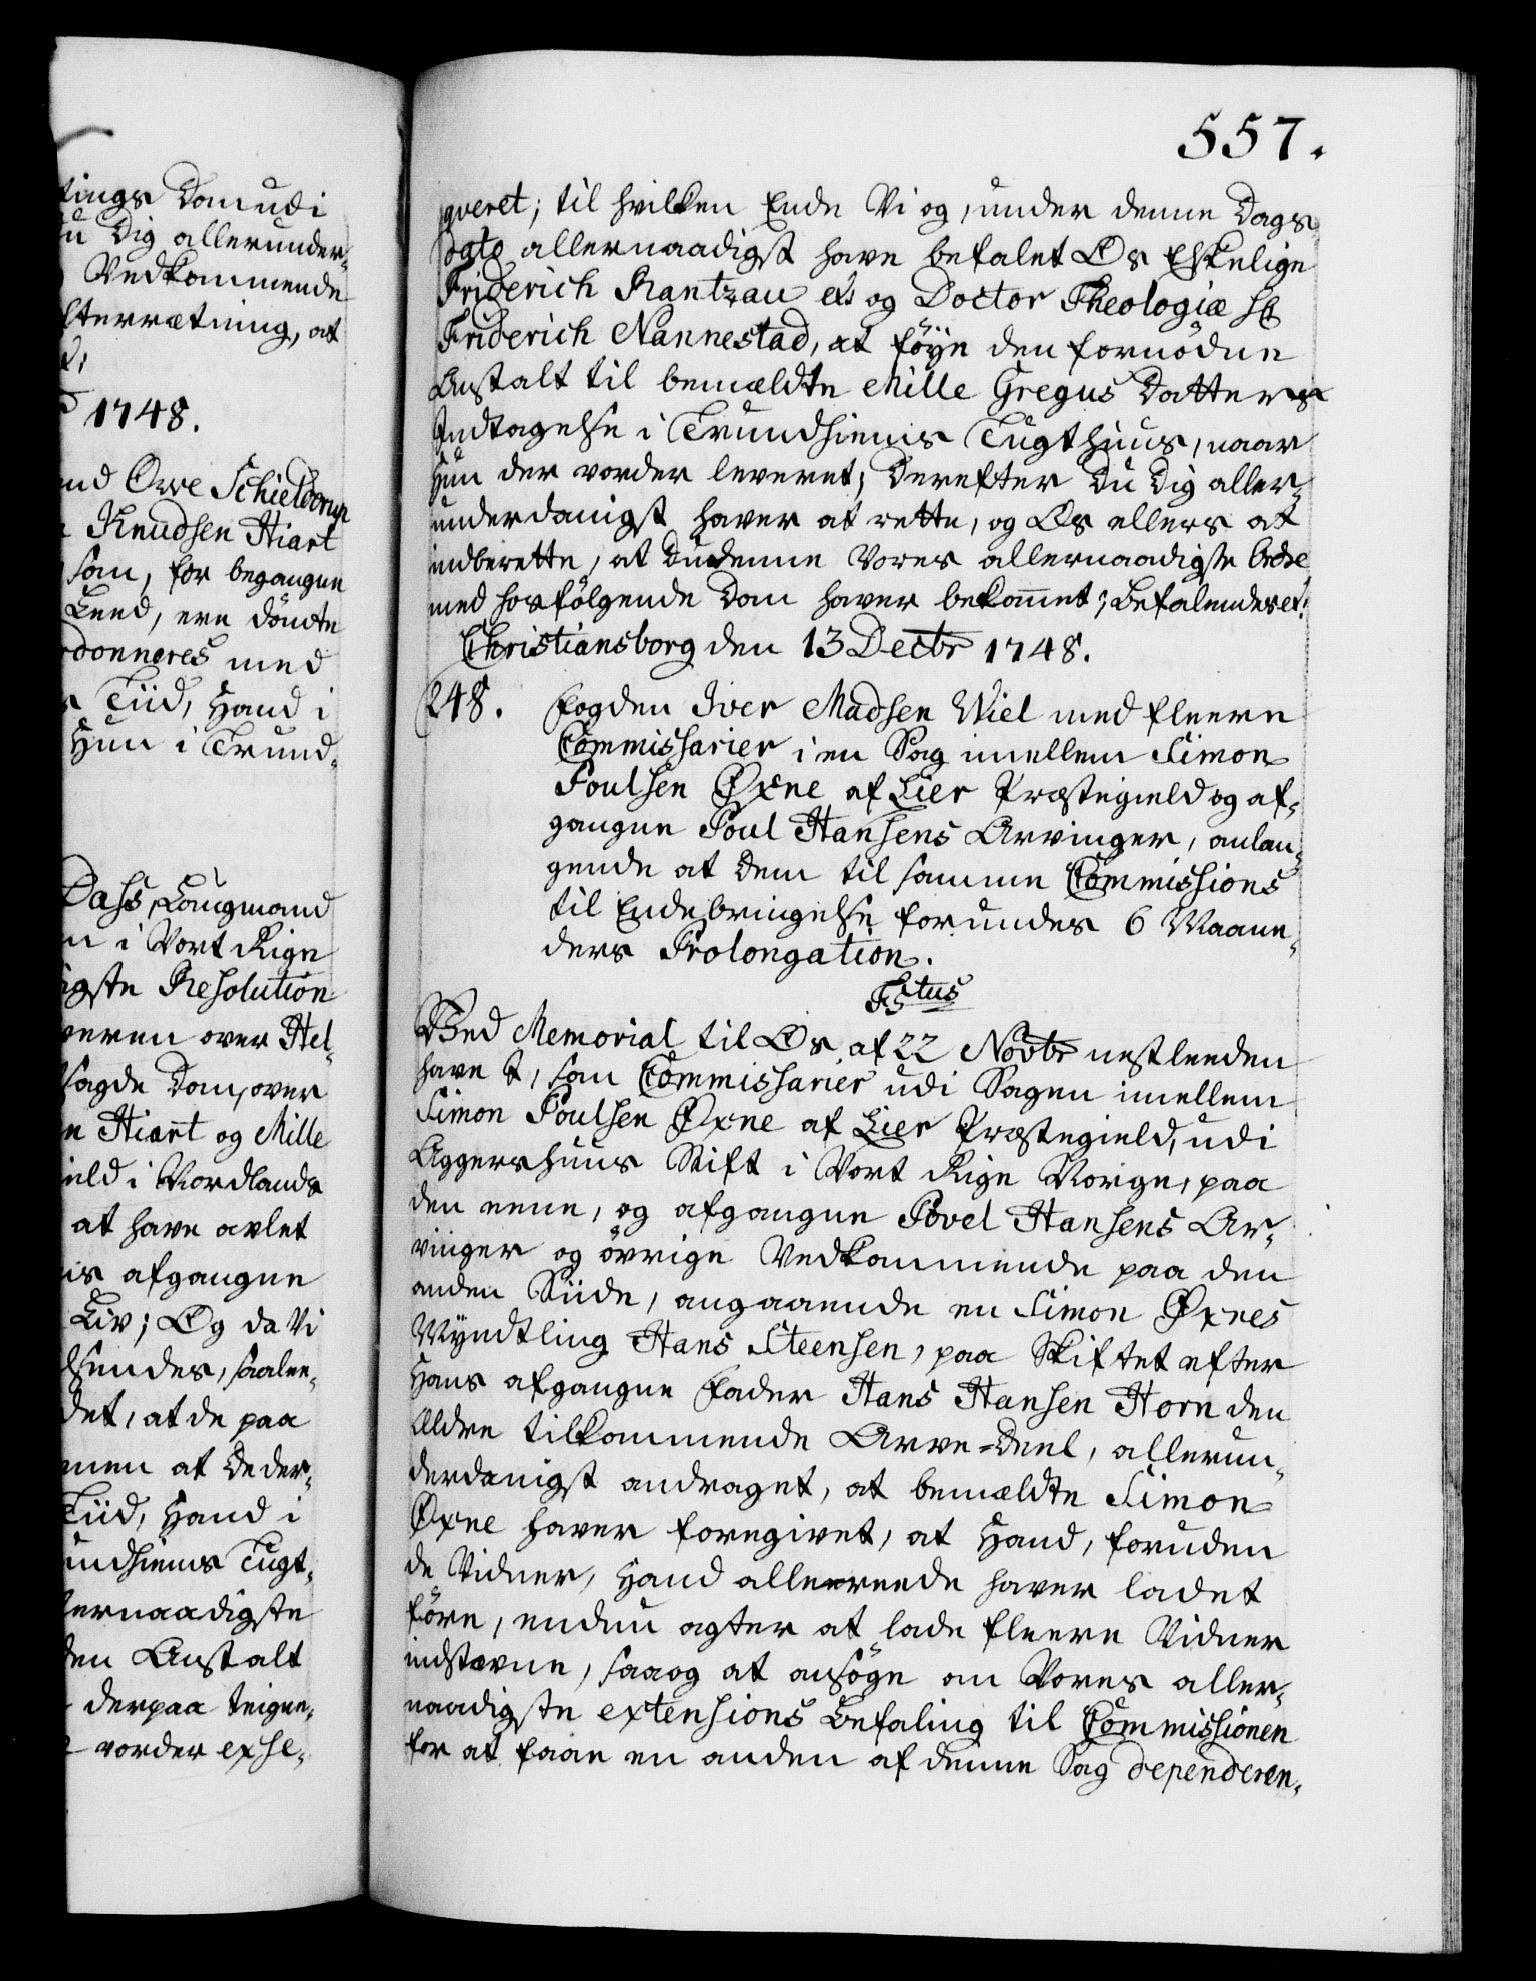 tings Dom udi
Du Dig allerunder-
Vedkommende
Efterrætning, at
1748.
Ove Schieldrup
Knudsen Hiart
som, for begangne
Leed, ere dömte
donneres med
Tiid, Hand i
Hun i Trund-
Dass, Laugmand
i Vort Rige
igste Resolution
veren over Hel-
sagde Dom, over
Hiart og Mille
ield i Nordlands
at have avlet
afgangne
Liv; Og da Vi
saalee-
det, at de paa
men at de der-
Tiid, Hand i
undhiems Tugt-
lernaadigste
den Anstalt
derpaa teigne-
vorder exse-
557.
qveret; til hvilken Ende Vi og, under denne Dags
Dato allernaadigst have befalet Os Elskelige
Friderich Rantzau etc og Doctor Theologiæ Hr
Friderich Nannestad, at föye den fornödne
Anstalt til bemældte Mille Gregus Datters
Indtagelse i Trundhiems Tugthuus, naar
Hun der vorder leveret; Derefter Du Dig aller-
underdanigst haver at rette, og Os ellers at
indberette, at Du denne Vores allernaadigste Ordre
med hosfölgende Dom haver bekommet; Befalendes etc:
Christiansborg den 13 Decbr 1748.
248. Fogden Iver Madsen Wiel med fleere
Commissarier i en Sag imellem Simon
Poulsen Øxne af Lier Præstegield og af-
gangne Poul Hansens Arvinger, anlan-
gende at dem til samme Commissions
til Endebringelse forundes 6 Maane-
ders Prolongation.
Fs tus
Ved Memorial til Os af 22 Novbr nestleeden
have I, som Commissarier udi Sagen imellem
Simon Poulsen Øxne af Lier Præstegield, udi
Aggershuus Stift i Vort Rige Norge, paa
den eene, og afgangne Povel Hansens Ar-
vinger og övrige Vedkommende paa den
anden Siide, angaaende en Simon Øxnes
Myndtling Hans Steensen, paa Skiftet efter
Hans afgangne Fader Hans Hansen Horn den
Ældre tilkommende Arve-Deel, allerun-
derdanigst andraget, at bemældte Simon
Øxne haver foregivet, at Hand, foruden
de Vidner, Hand allereede haver ladet
före, endnu agter at lade fleere Vidner
indstævne, saa og at ansöge om Vores aller-
naadigste extensions Befaling til Commissionen
for at faae en anden af denne Sag dependeren-